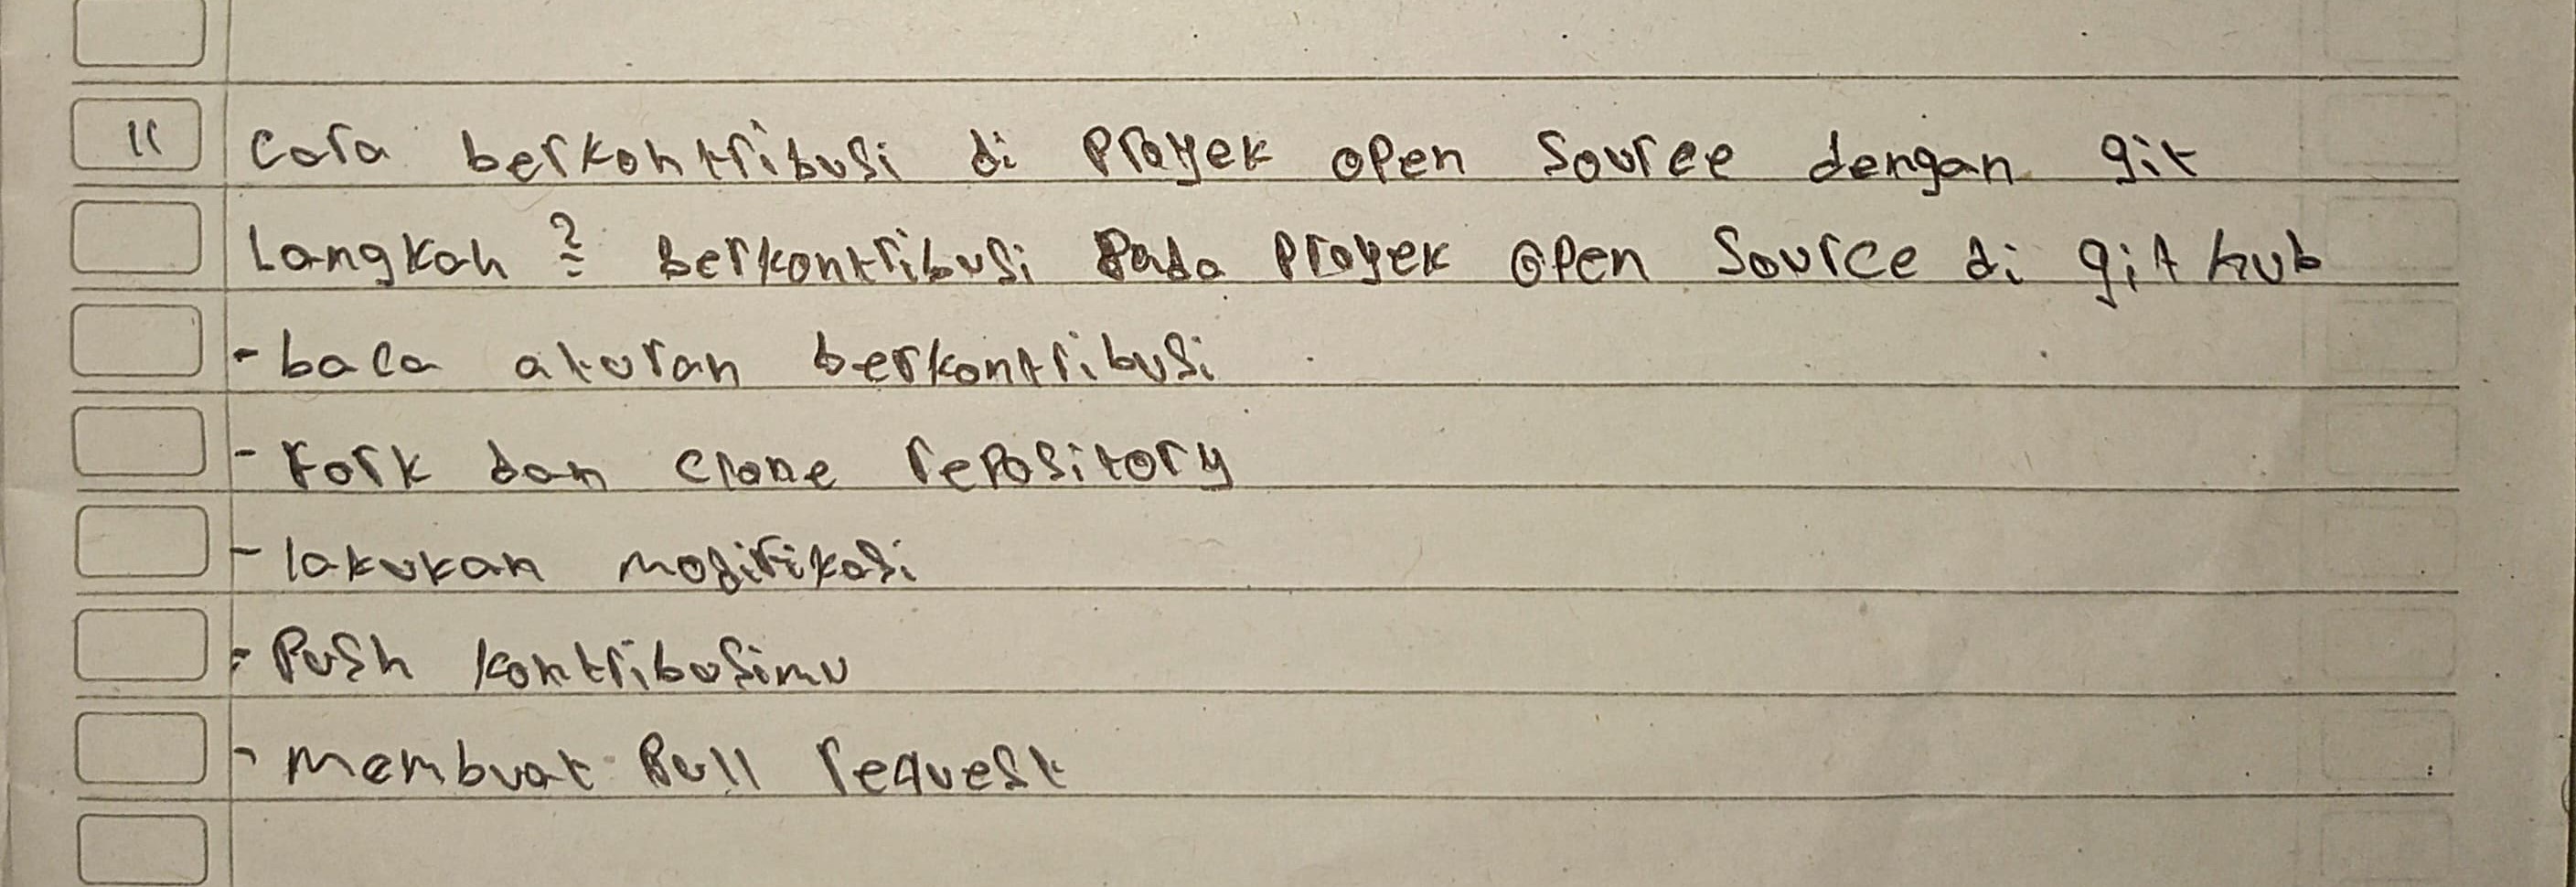 11 Cara berkontribusi di Proyek open Source dengan git
Langkah ² berkontribusi Pada Proyek Open Source di git hub
- baca aturan berkontribusi
- Fork dan clone repository
- lakukan modifikasi
- Push kontribusimu
- Membuat Pull request